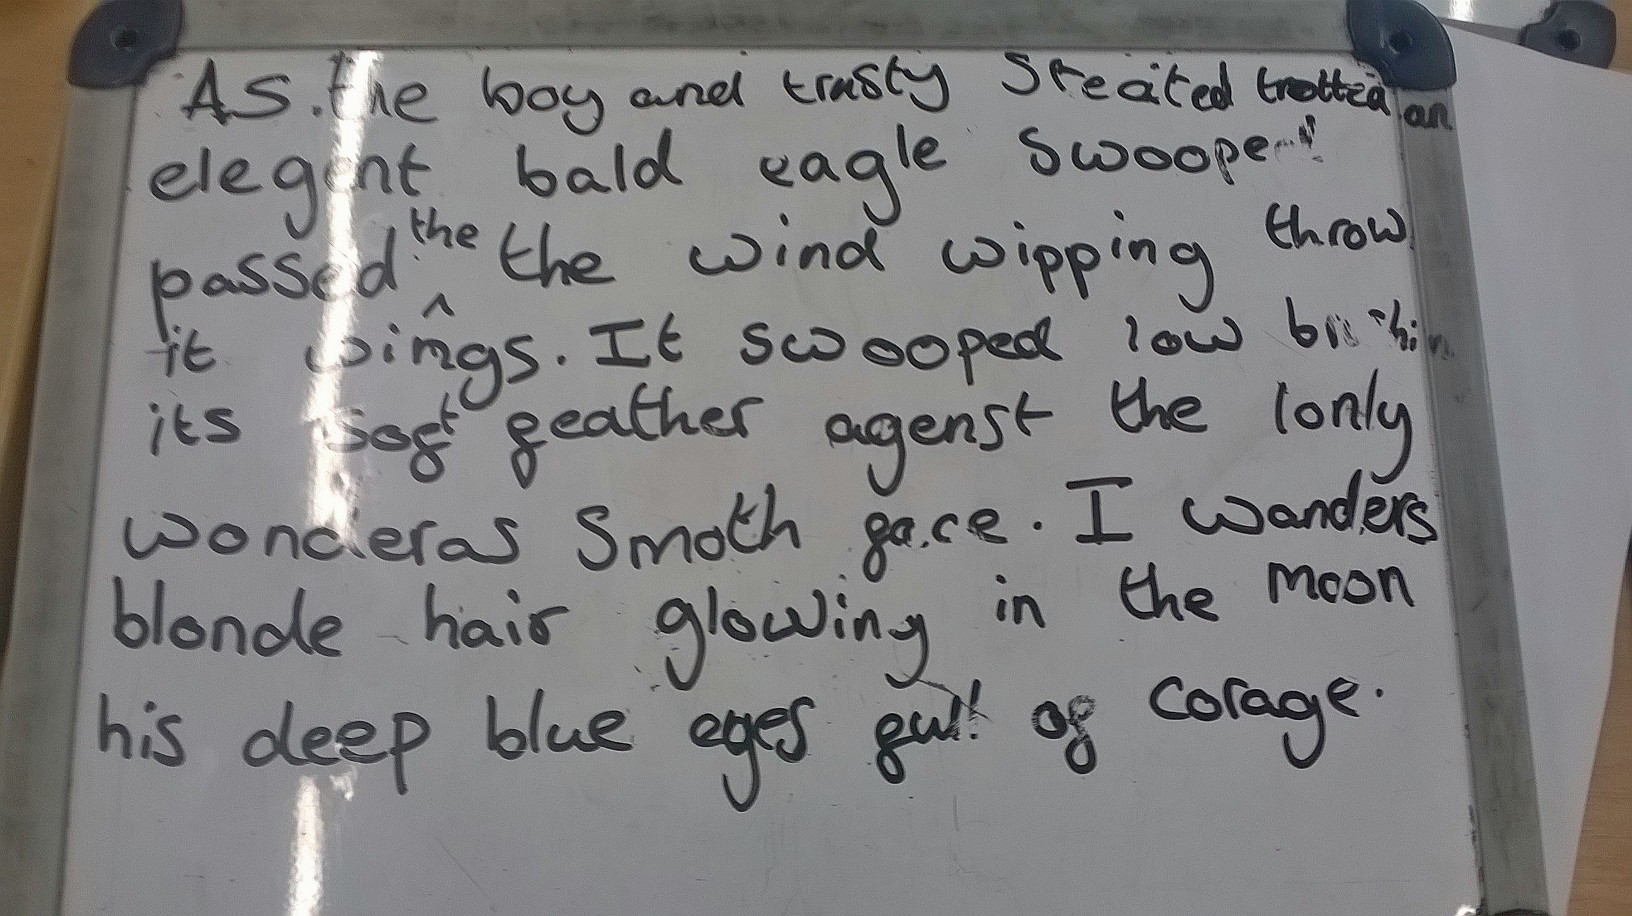 As the boy and trusty Steated trotted an
elegent bald eagle swooped
passed the the wind wipping throw
it wings. It swooped low
its soft feather agenst the lonly
wonderas smoth face. I wanders
blonde hair glowing in the moon
his deep blue eyes full of corage.